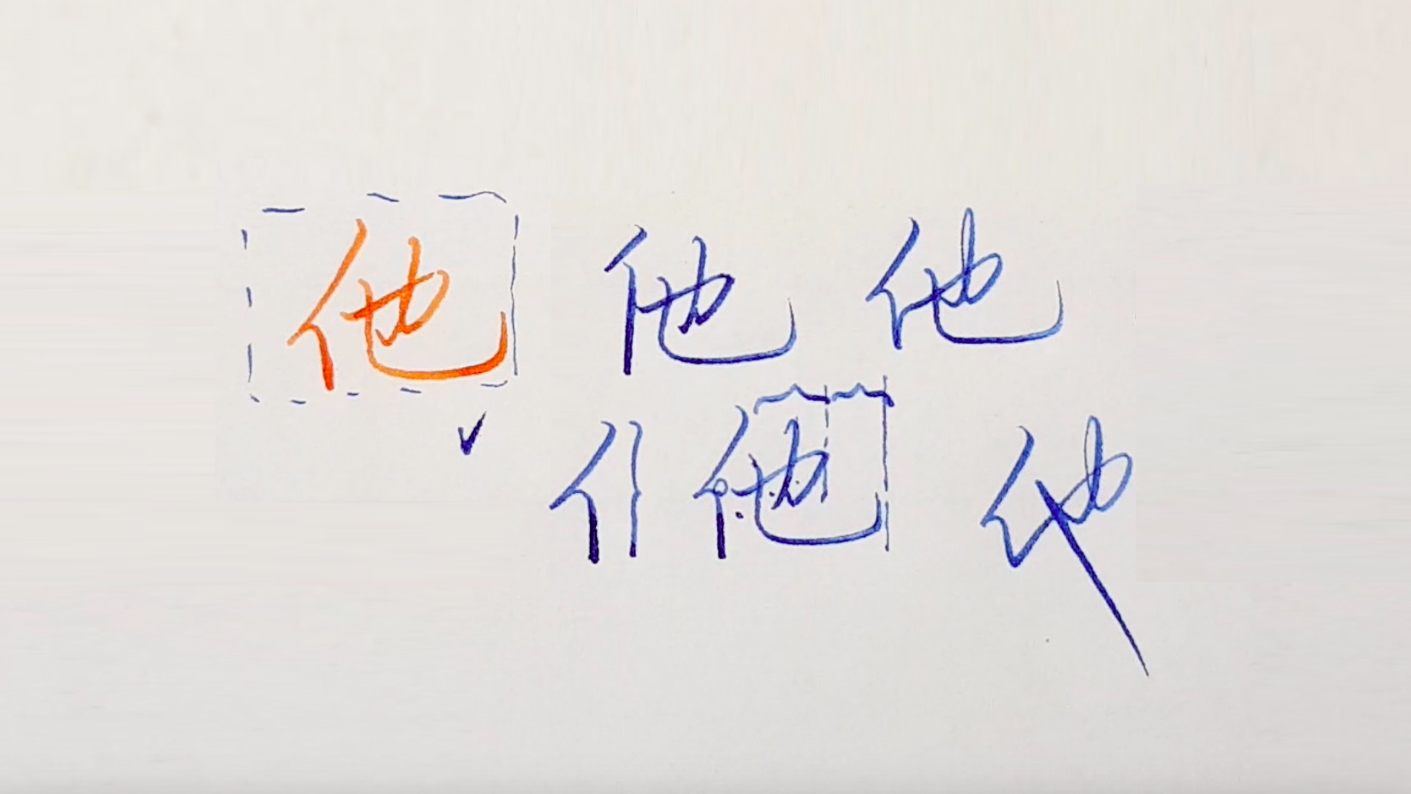 他 他 他
亻 他 他